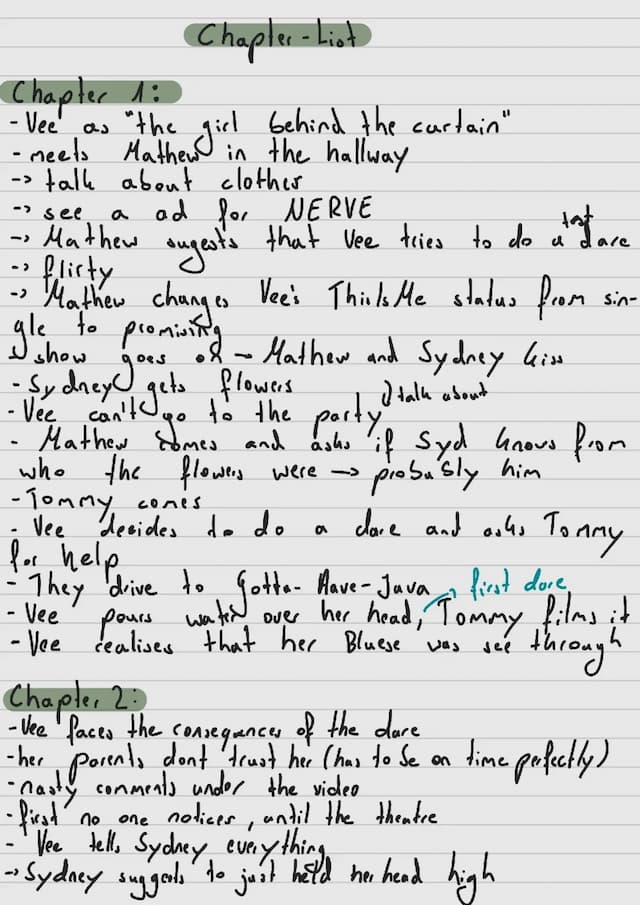 Chapter-List
Chapter 1:
- Vee as "the girl behind the curtain"
- meets Mathew in the hallway
-> talk about clothes
-> see a ad for NERVE
-> Mathew sugests that Vee tries to do a test dare
-> flirty
-> Mathew changes Vee's ThisIsMe status from sin-
gle to promising
↳ show goes on - Mathew and Sydney kiss
- Sydney gets flowers
- Vee can't go to the party ↳ talk about
- Mathew comes and asks if Syd knows from
who the flowers were -> probably him
- Tommy comes
- Vee decides to do a dare and asks Tommy
for help
- They drive to Gotta-Have-Java -> first dare
- Vee pours water over her head, Tommy films it
- Vee realises that her Bluese was see through
Chapter 2:
- Vee faces the consequences of the dare
- her parents dont trust her (has to be on time perfectly)
- nasty comments under the video
- first no one notices, until the theatre
- Vee tells Sydney everything
-> Sydney suggests to just held her head high